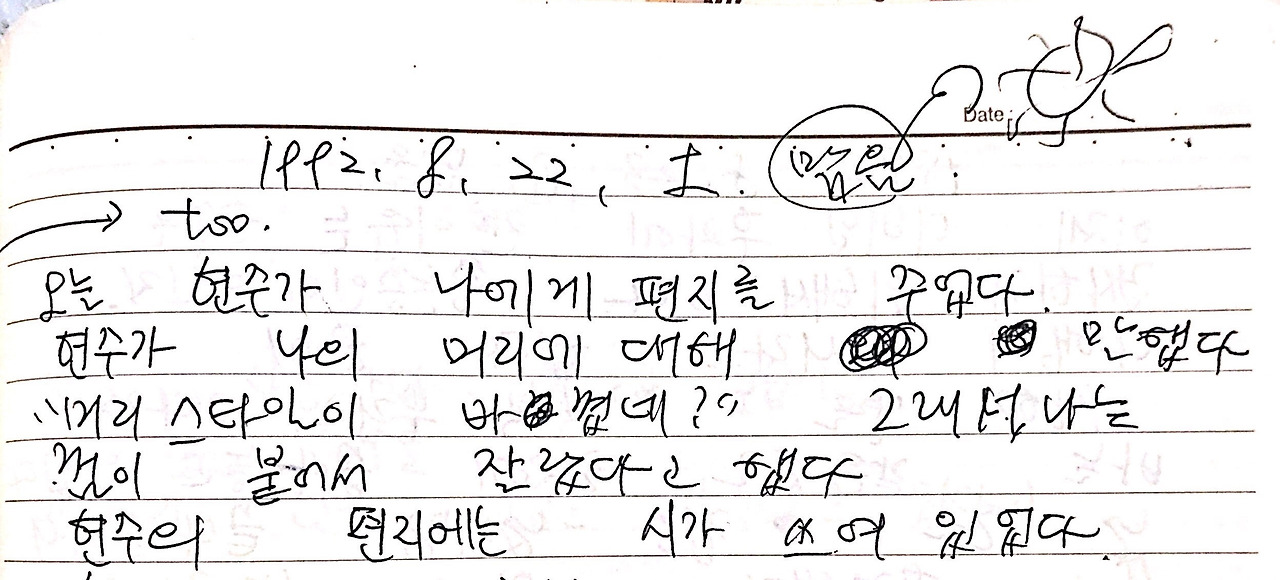 Date
1992. 8. 22, 土. 맑음.
→ too.
오늘 현준가 나에게 편지를 주었다.
현수가 나의 머리에 대해 말했다
"머리 스타일이 바꼈데?" 그래서 나는
껌이 붙어서 잘랐다고 했다
현수의 편지에는 시가 쓰여 있었다.